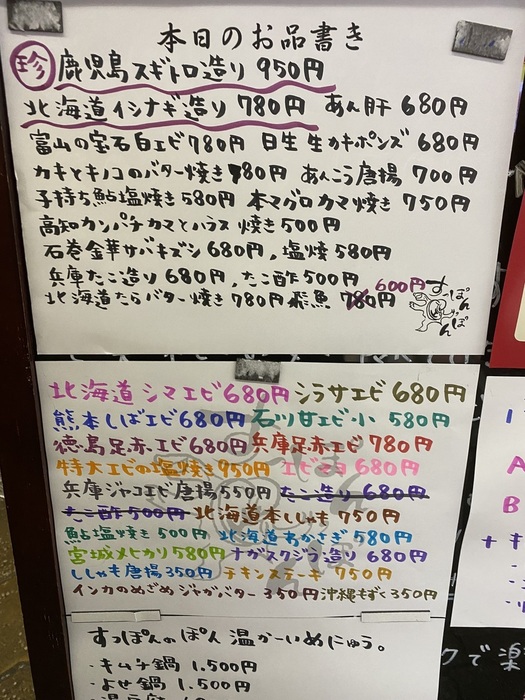 本日のお品書き
珍 鹿児島スギトロ造り 950円
北海道イシナギ造り 780円 あん肝 680円
富山の宝石白エビ780円 日生 生カキポンズ 680円
カキとキノコのバター焼き 780円 あんこう唐揚 700円
子持ち鮎塩焼き580円 本マグロカマ焼き 750円
高知カンパチカマとハラス 焼き500円
石巻金華サバキズシ680円,塩焼580円
兵庫たこ造り680円,たこ酢500円
北海道たらバター焼き780円 飛魚 780円 600円
すっぽんぽん
北海道シマエビ680円 シラサエビ680円
熊本しばエビ680円 石川甘エビ小 580円
徳島足赤エビ680円 兵庫足赤エビ 780円
特大エビの塩焼き950円 エビマヨ 680円
兵庫ジャコエビ唐揚550円 たこ造り 680円
たこ酢500円 北海道本ししゃも 750円
鮎塩焼き 500円 北海道わかさぎ 580円
宮城メヒカリ580円 ナガスクジラ造り 680円
ししゃも唐揚350円 チキンステーキ 750円
インカのめざめ じゃがバター 350円 沖縄もずく350円
すっぽんのぽん 温かーいめにゅう。
・キムチ鍋 1,500円
・よせ鍋 1,500円
クで楽